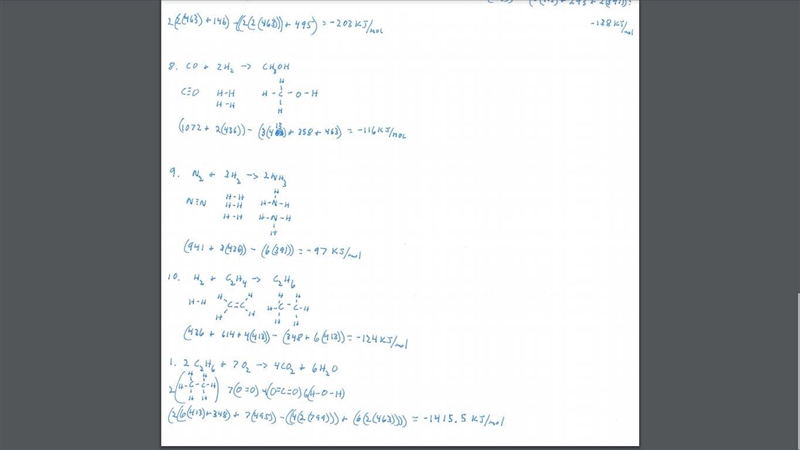 2(2(463) + 146) - (2(2(463)) + 495) = -203 KJ/mol
-138 KJ/mol
8. CO + 2H₂ → CH₃OH
C≡O H-H H-C-O-H
H-H
(1072 + 2(436)) - (3(413) + 358 + 463) = -116 KJ/mol
9. N₂ + 3H₂ → 2NH₃
N≡N H-H H-N-H
H-H H-N-H
H-H
(941 + 3(436)) - (6(391)) = -97 KJ/mol
10. H₂ + C₂H₄ → C₂H₆
H-H C=C H-C-C-H
(436 + 614 + 4(413)) - (348 + 6(413)) = -124 KJ/mol
1. 2C₂H₆ + 7O₂ → 4CO₂ + 6H₂O
2(H-C-C-H) 7(O=O) 4(O=C=O) 6(H-O-H)
(2(6(413)+348) + 7(495)) - ((4(2(799))) + (6(2(463)))) = -1415.5 KJ/mol